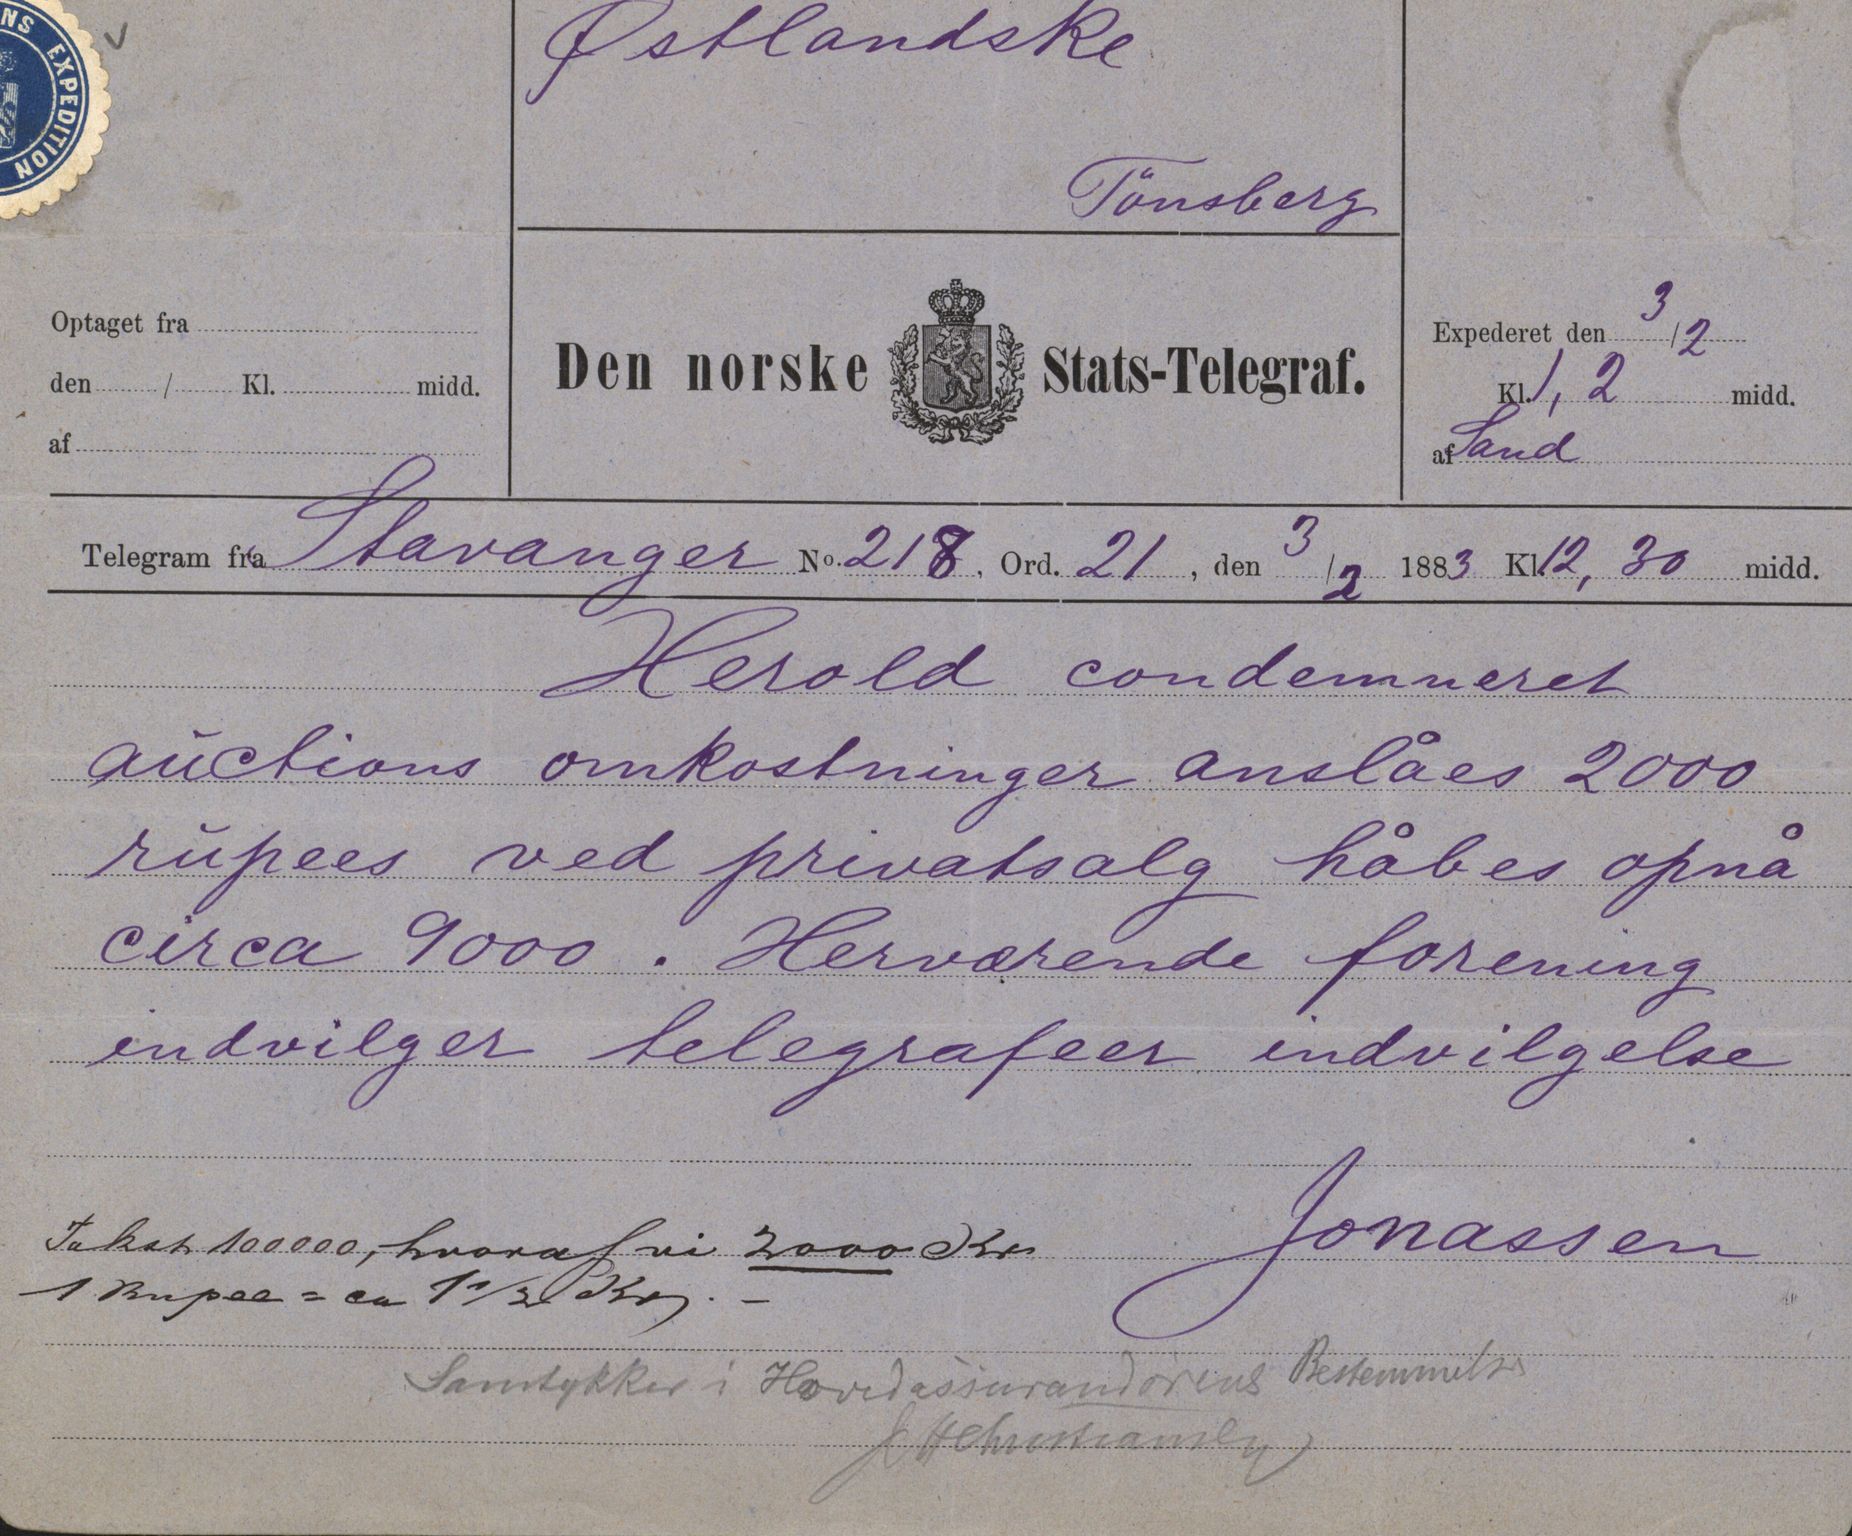 NS EXPEDITION
Østlandske
Tönsberg
Optaget fra
den / Kl. midd.
af
Den norske Stats-Telegraf.
Expederet den 3/2
Kl. 1,2 midd.
af Sand
Telegram fra Stavanger No. 218, Ord. 21, den 3/2 1883 Kl. 12,30 midd.
Herold condemneret
auctions omkostninger anslåes 2000
rupees ved privatsalg håbes opnå
circa 9000. Herværende forening
indvilger telegrafeer indvilgelse
Jonassen
Takst 100000, hvoraf vi 2000 Kr
1 Rupee = ca 1 1/2 Kr. –
Samtykker i Hovedassurandørens Bestemmelse
HChristiansen